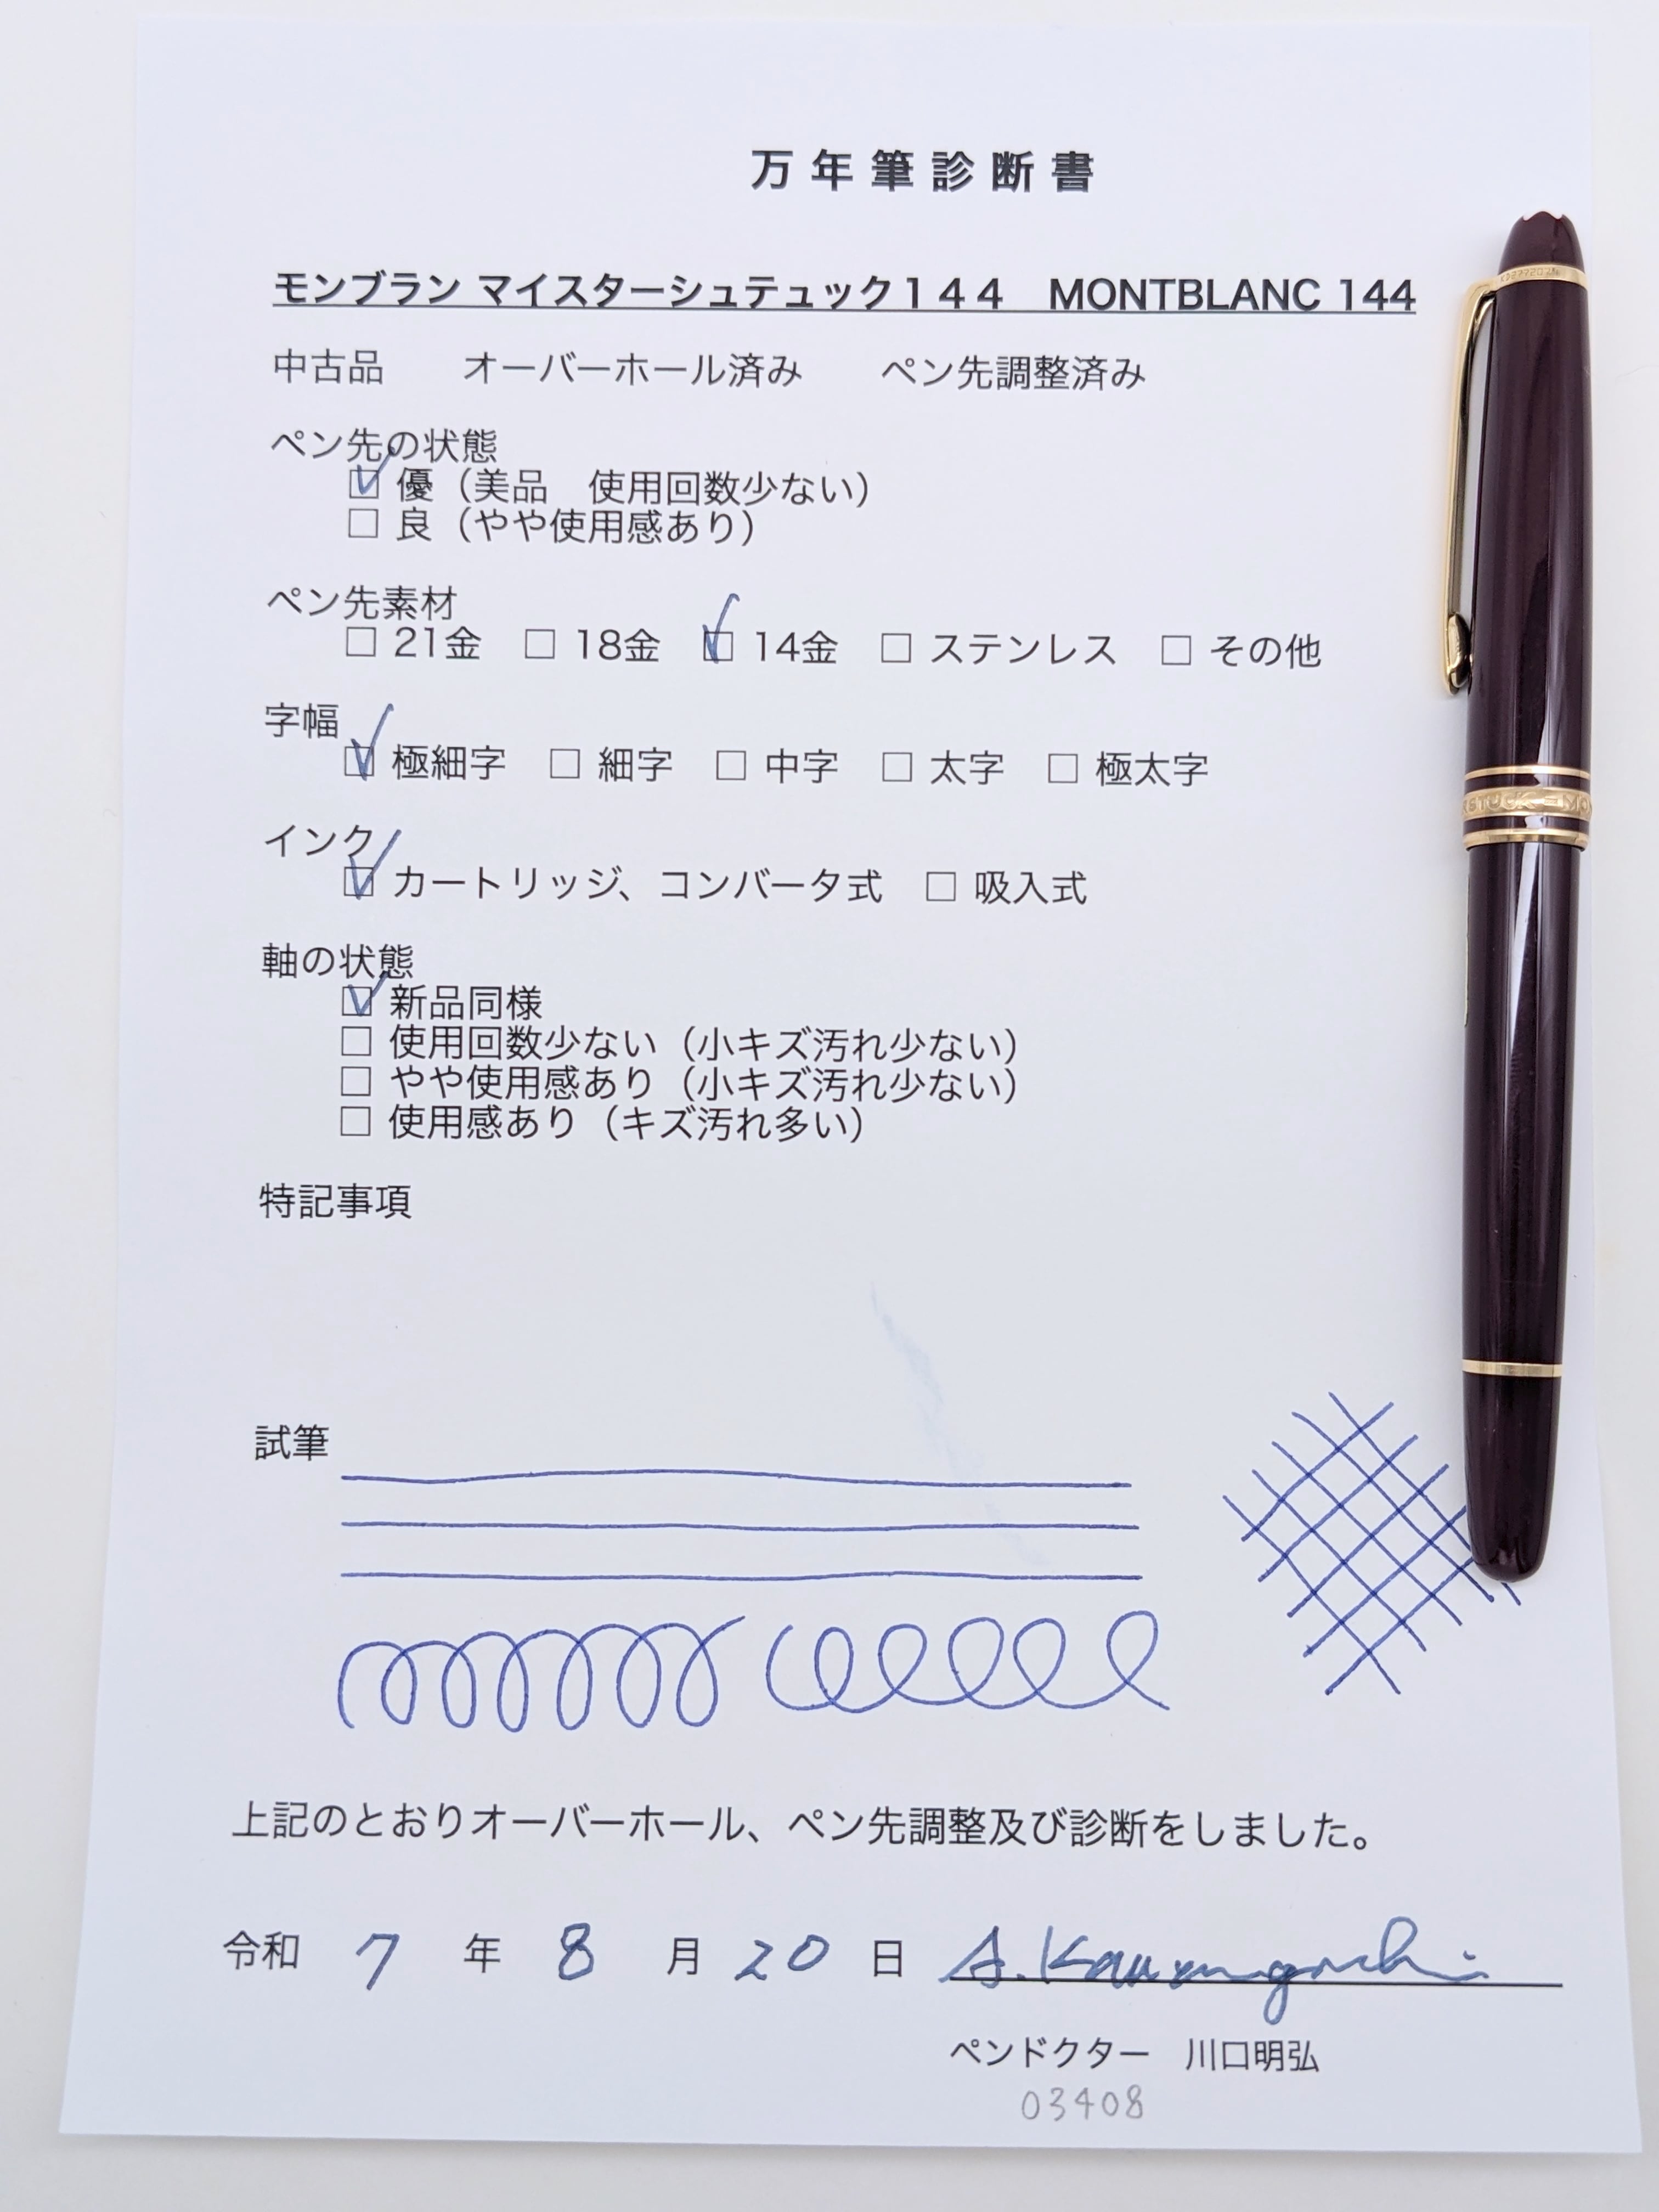 万年筆診断書
モンブラン マイスターシュテュック１４４　MONTBLANC 144
中古品　　オーバーホール済み　　ペン先調整済み
ペン先の状態
☑ 優（美品　使用回数少ない）
□ 良（やや使用感あり）
ペン先素材
□ 21金　□ 18金　☑ 14金　□ ステンレス　□ その他
字幅
☑ 極細字　□ 細字　□ 中字　□ 太字　□ 極太字
インク
☑ カートリッジ、コンバータ式　□ 吸入式
軸の状態
☑ 新品同様
□ 使用回数少ない（小キズ汚れ少ない）
□ やや使用感あり（小キズ汚れ少ない）
□ 使用感あり（キズ汚れ多い）
特記事項
試筆
上記のとおりオーバーホール、ペン先調整及び診断をしました。
令和 7 年 8 月 20 日 A. Kawaguchi
ペンドクター　川口明弘
03408
STÜCK – MO